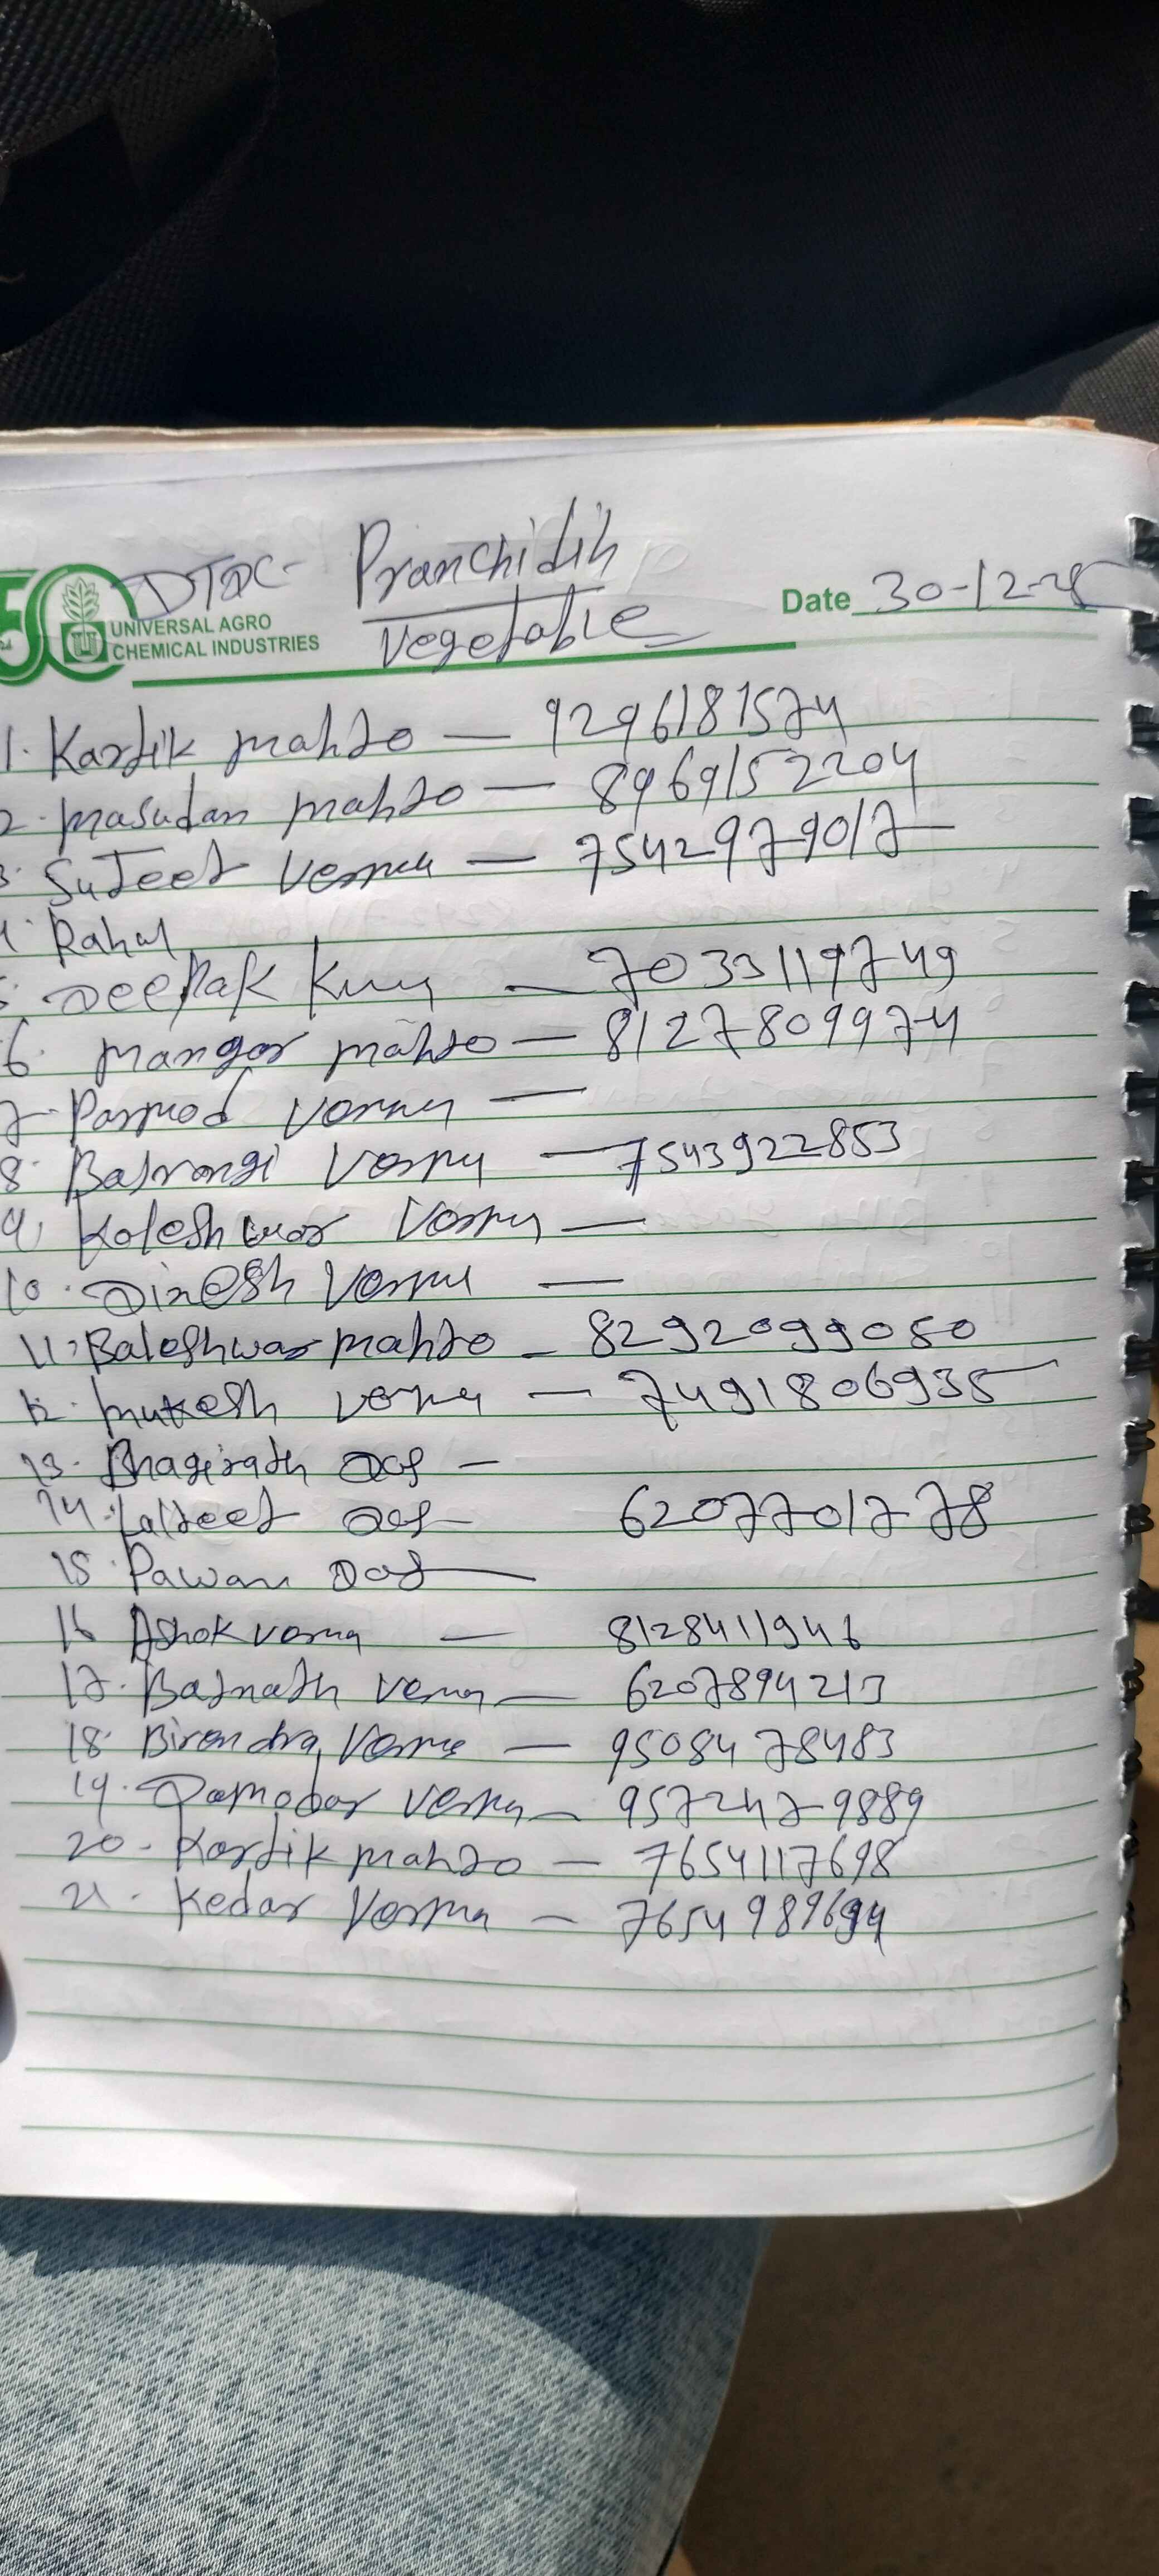 DTDC- Pranchidih
50
UNIVERSAL AGRO
CHEMICAL INDUSTRIES
Vegetable
Date 30-12-25
1. Kartik mahto — 9296181574
2. Masudan mahto — 8969152204
3. SuJeet Verma — 7542979017
4. Rahul
5. Deepak Kum — 7033119749
6. Mangar mahto — 8127809974
7. Parmod Verma —
8. Bajrangi Verma — 7543922853
9. Koleshwar Verma —
10. Dinesh Verma —
11. Baleshwar mahto — 8292099050
12. Mukesh Verma — 7491806935
13. Bhagirath Das —
14. LalJeet Das — 6207701778
15. Pawan Das —
16 Ashok verma — 8128411946
17. Bajnath Verma — 6207894213
18. Birendra Verma — 9508478483
19. Damodar Verma — 9572479889
20. Kartik mahto — 7654117698
21. Kedar Verma — 7654989694